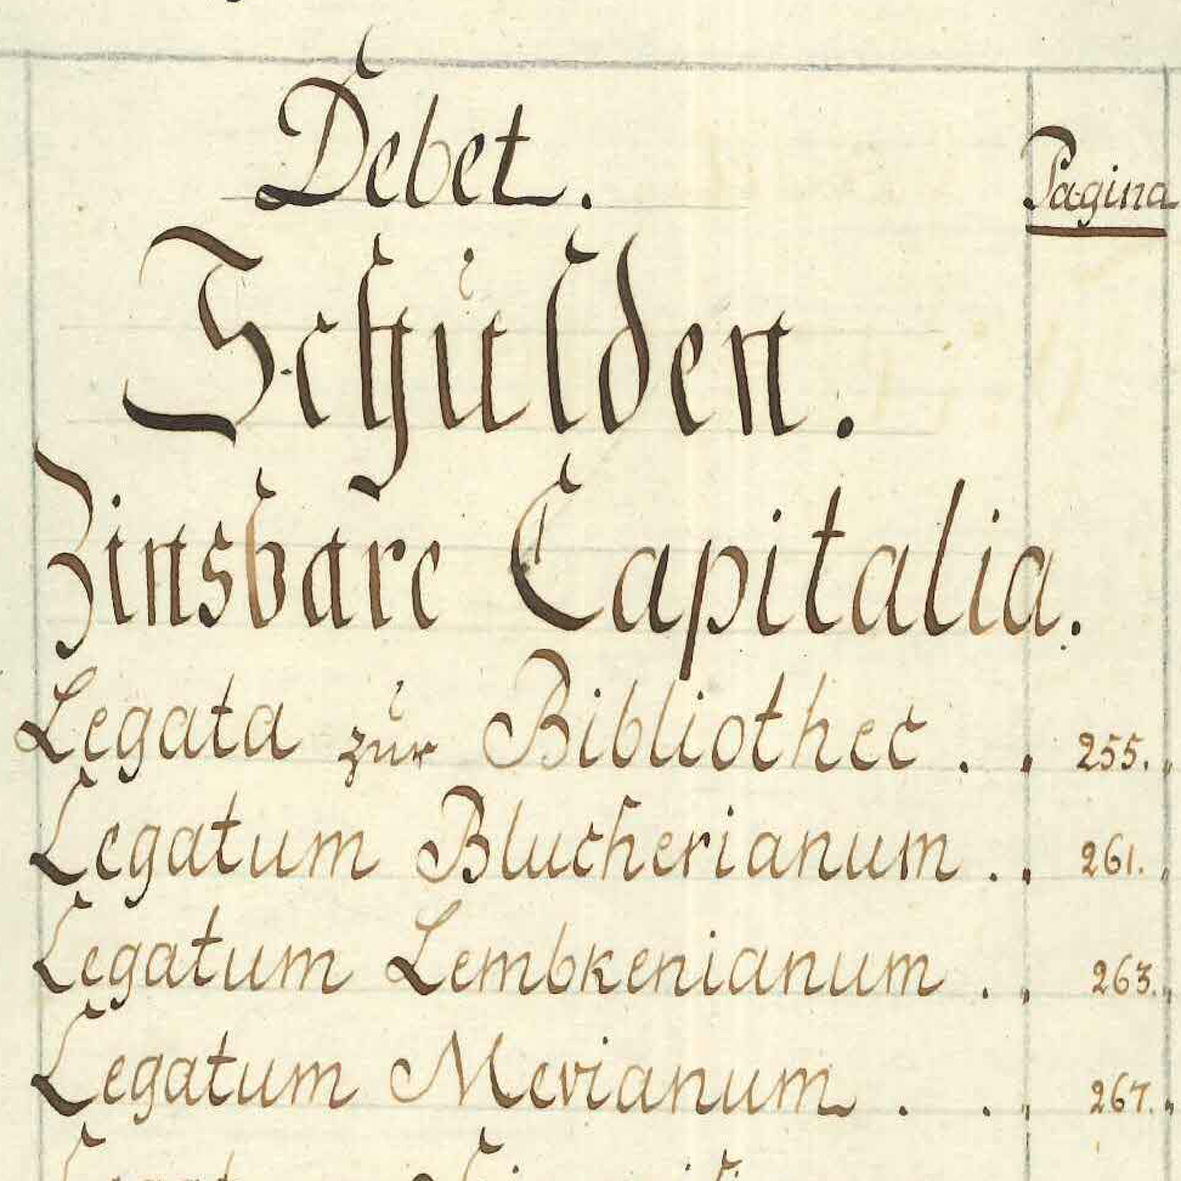 Debet.
Pagina
Schulden.
Zinsbare Capitalia.
Legata zur Bibliothec . . 255.
Legatum Blucherianum . . 261.
Legatum Lembkenianum . . 263.
Legatum Mevianum . . 267.